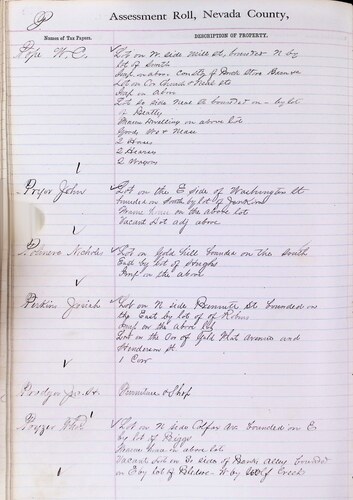 P
Assessment Roll, Nevada County,
Names of Tax Payers.
DESCRIPTION OF PROPERTY.
Pope W. C.
Lot on W. side Mill St, bounded N by
lot of Smith
Imp on above Consty of Brick Store
Lot on Cor Church & sts
Imp on above
Lot So side Neal A bounded on by lot
of Beatty
Frame Dwelling on above lot
Goods Wa & Mdse
2 Horses
2 Hearses
2 Wagons
Pryor John
Lot on the E side of Washington St
bounded on South by lot of Jenkins
Frame House on the above lot
Vacant Lot adj above
Nicholas
Lot on Gold hill bounded on the South
East by lot of Hughs
Imp on the above
Perkins Josiah
Lot on N side Bennett St bounded on
the East by lot of
Imp on the above lot
Lot on the Cor of Gold Flat Avenue and
Henderson St.
1 Cow
Furniture & Shop
Lot on N side Colfax Ave bounded on E
by lot of Biggs
Frame House on above lot
Vacant Lot on So side of Banks Alley bounded
on E by lot of W by Wolf Creek